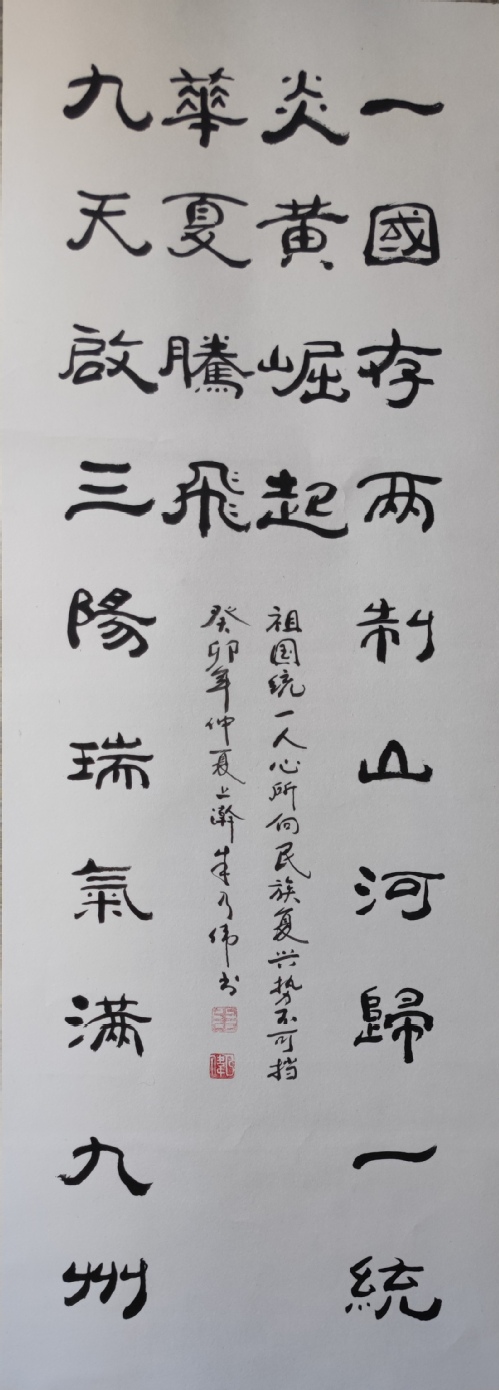 一國存兩制山河歸一統
炎黄崛起
華夏騰飛
九天啟三陽瑞氣滿九州
祖国统一人心所向民族复兴势不可挡
癸卯年仲夏上澣朱乃伟书